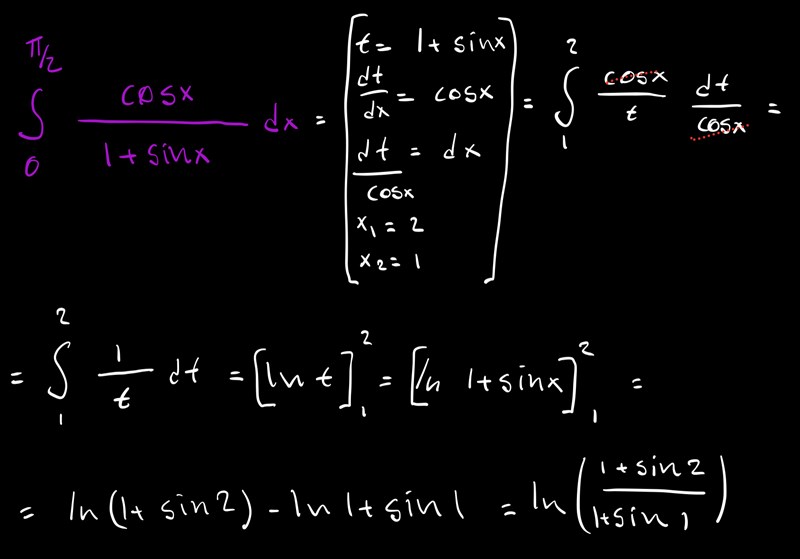 ∫₀^{π/2} cosx / (1 + sinx) dx = [ t = 1 + sinx
dt/dx = cosx
dt/cosx = dx
x₁ = 2
x₂ = 1 ] = ∫₁² cosx/t dt/cosx =
= ∫₁² 1/t dt = [ln t]₁² = [ln 1+sinx]₁² =
= ln(1+ sin2) - ln 1+ sin 1 = ln( (1+sin2) / (1+sin 1) )